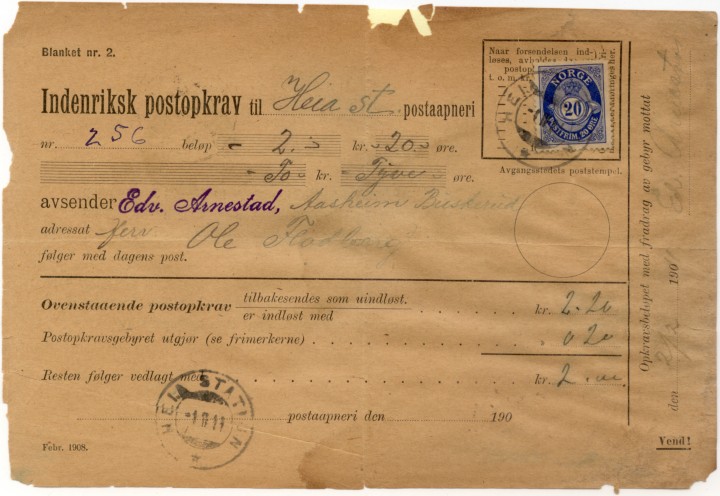 Blanket nr. 2.
Naar forsendelsen ind-
løses, avholdes
postop
t. o. m.
Indenriksk postopkrav til Heia st. postaapneri
NORGE
20
POSTFRIM. 20 ØRE
nr. 256 beløp - 2 - kr. 20 øre.
- To - kr. - Tyve øre.
Avgangsstedets poststempel.
avsender Edv. Arnestad, Aasheim Buskerud
adressat herr Ole
følger med dagens post.
Ovenstaaende postopkrav tilbakesendes som uindløst.
er indløst med kr. 2.20
Postopkravsgebyret utgjør (se frimerkerne) 0 20
Resten følger vedlagt med kr. 2.
HEIA STATION
-1 II 11
postaapneri den 190
Febr. 1908.
Opkravsbeløpet med fradrag av gebyr mottat
den 190
Vend!